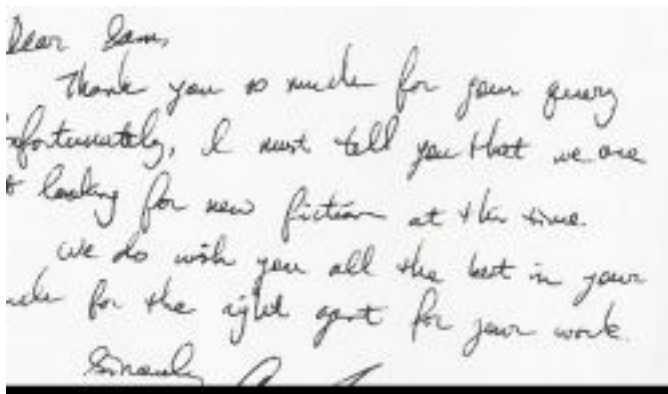 Dear Sam,
Thank you so much for your query
nfortunately, I must tell you that we are
t looking for new fiction at this time.
We do wish you all the best in your
for the right agent for your work.
Sincerely